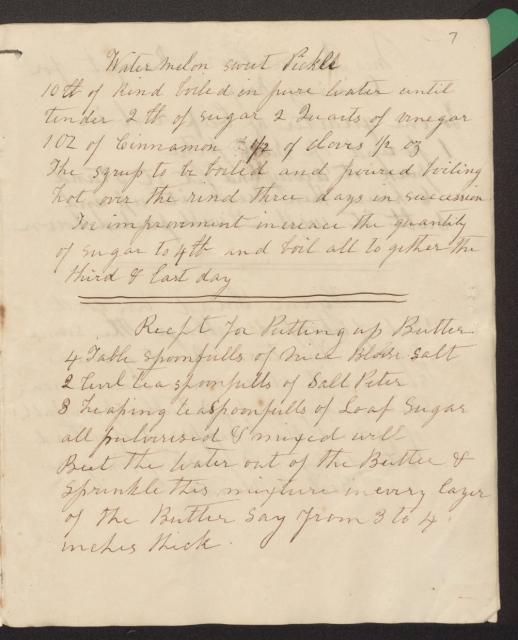 7
Water melon sweet Pickle
10 lb of Rind boiled in pure Water until
tender 2 lb of sugar 2 Quarts of vinegar
1 oz of Cinnamon 1/2 of cloves 1/2 oz
The syrup to be boiled and poured boiling
hot over the rind three days in succession
For improvement increace the quantity
of sugar to 4 lb and boil all to gether the
third & last day
Recpt for Putting up Butter
4 Table spoonfulls of nice Blown Salt
2 level teaspoonfulls of Salt Peter
3 heaping teaspoonfulls of Loaf Sugar
all pulverised & mixed well
Beet the Water out of the Butter &
Sprinkle this mixture in every layer
of the Butter Say from 3 to 4
inches thick.